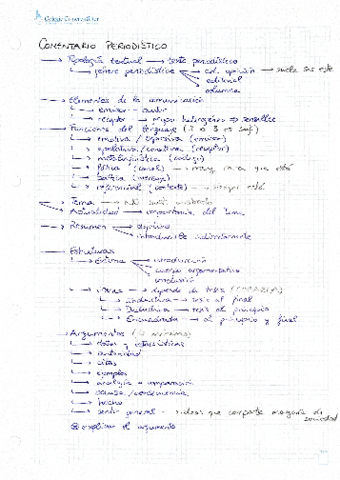 COMENTARIO PERIODÍSTICO
→ Tipología textual → texto periodístico
↳ género periodístico → art. opinión → suele ser este
editorial
columna
→ Elementos de la comunicación
↳ emisor → autor
↳ receptor → grupo heterogéneo →
→ Funciones del lenguaje (2 o 3 no
↳ emotiva / expresiva (emisor)
↳ apelativa / conativa (receptor)
↳ metalingüística (código)
↳ (canal) → muy rara que esté
↳ (mensaje)
↳ referencial (contexto) → siempre está
→ Tema →
→ Actualidad → importancia del tema
→ Resumen → objetivo
→ Estructura
↳ Externa → introducción
cuerpo argumentativo
conclusión
↳ Interna → depende de tesis
↳ Inductiva → tesis al final
↳ Deductiva → tesis al principio
↳ Encuadrada → al principio y final
→ Argumentos (4 mínimo)
↳ datos y estadísticas
↳ autoridad
↳ citas
↳ ejemplos
↳ analogía o comparación
↳ causa / consecuencia
↳ hecho
↳ sentir general → ideas que comparte mayoría de sociedad
explicar el argumento